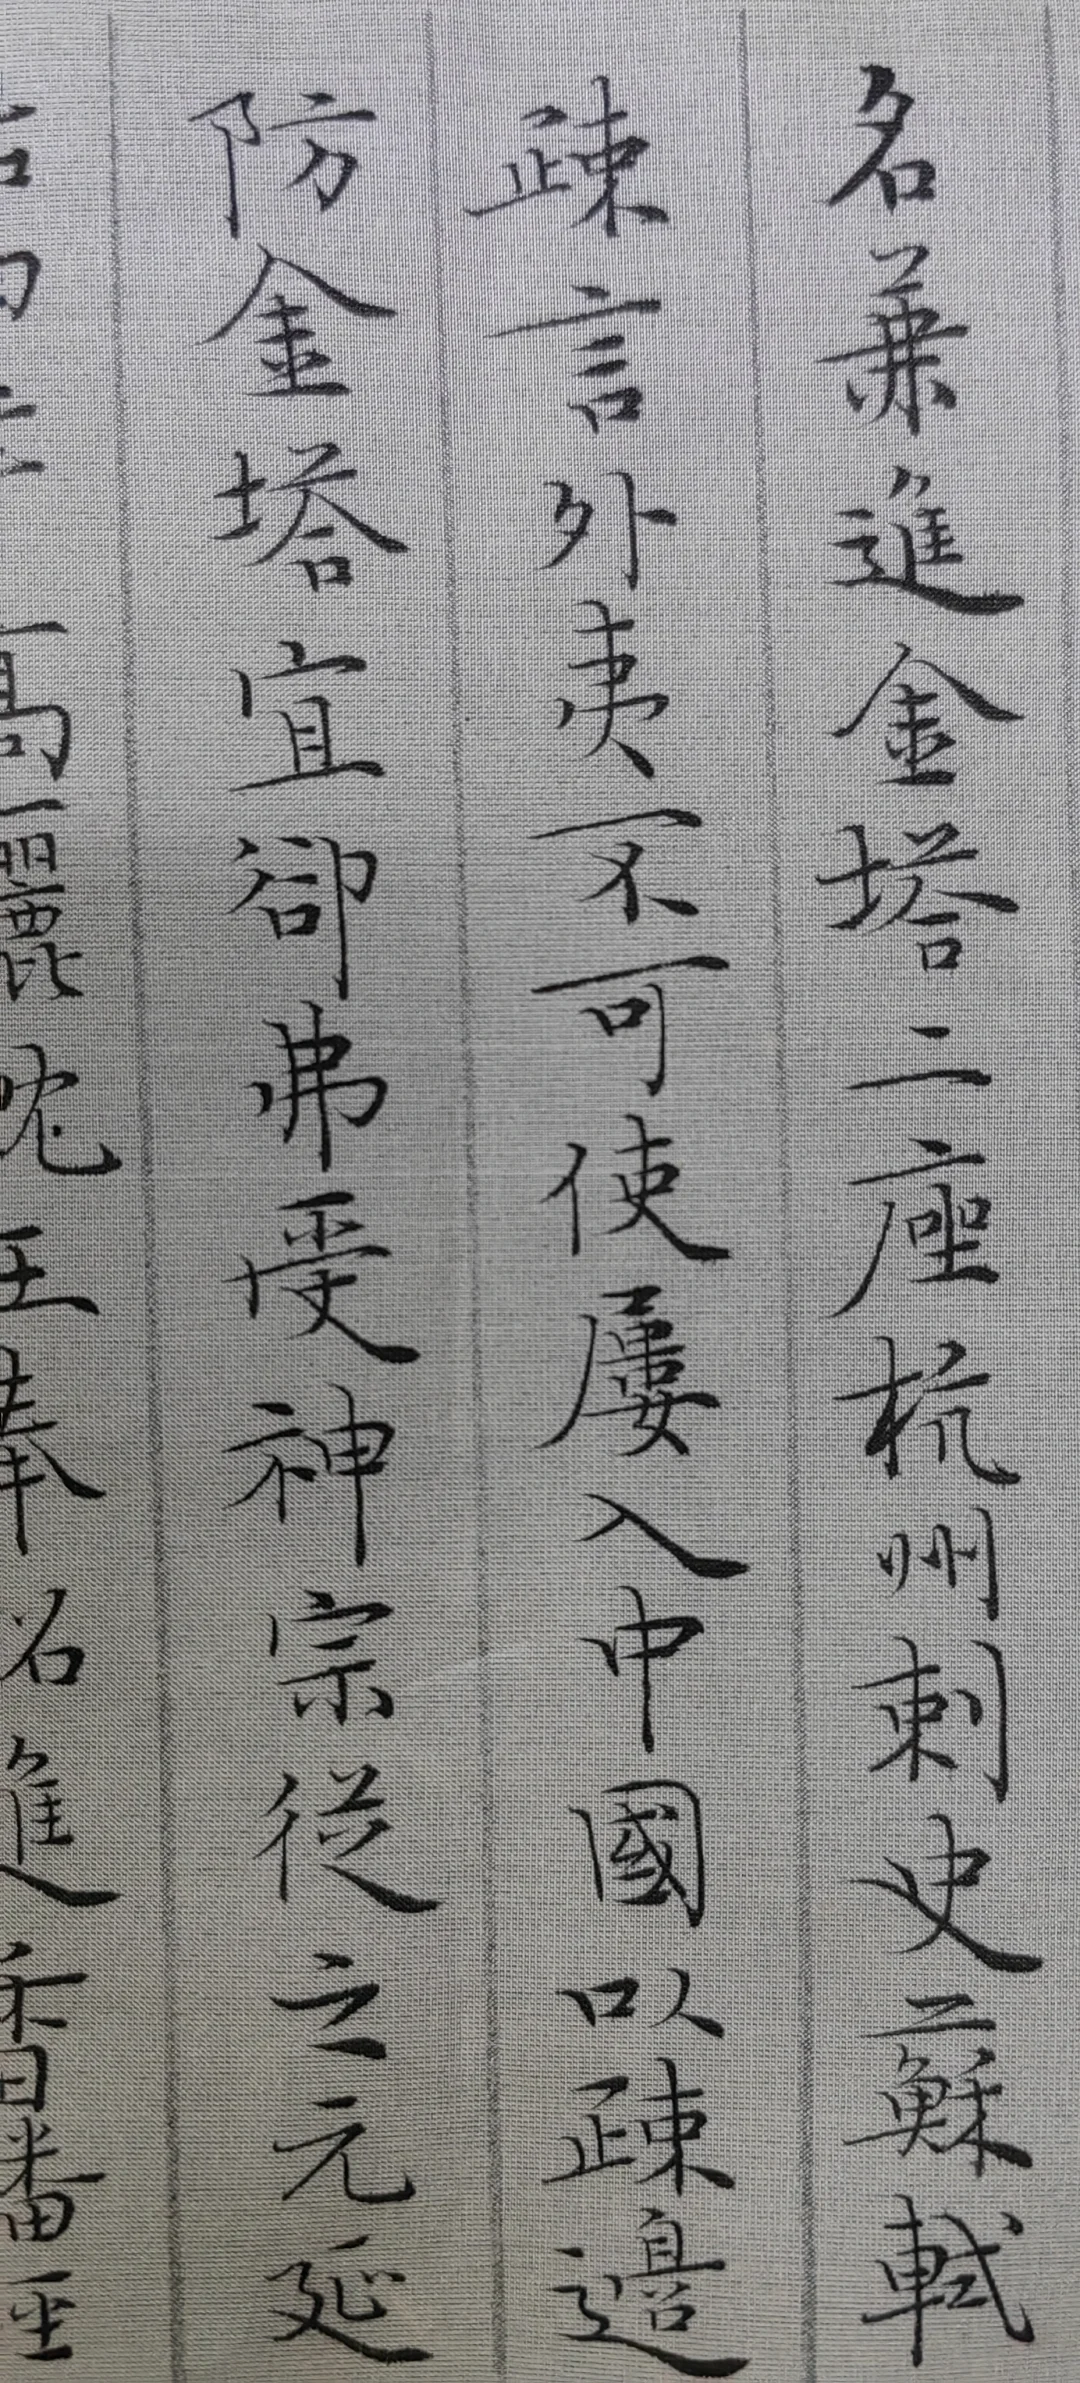 名兼進金塔二座杭州刺史蘇軾
疎言外夷不可使屢入中國以疎邊
防金塔宜卻弗受神宗從之元延
高麗沈王奉詔進香番至